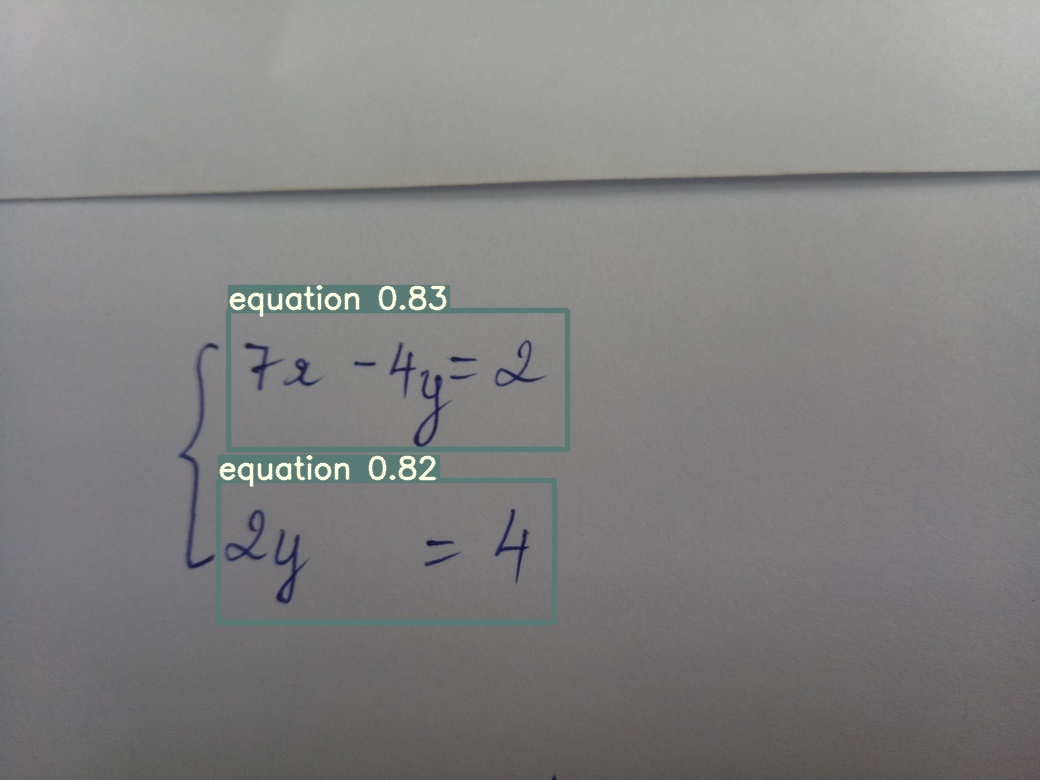 equation 0.83
7x - 4y = 2
equation 0.82
2y = 4